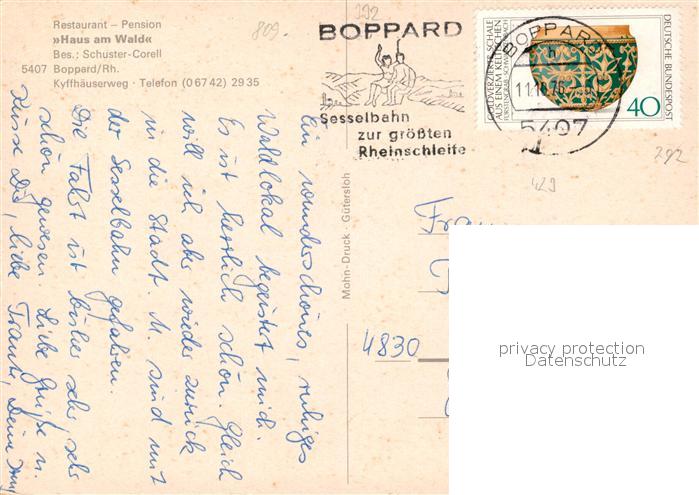 Restaurant – Pension
»Haus am Wald«
Bes.: Schuster-Corell
5407 Boppard/Rh.
Kyffhäuserweg · Telefon (06742) 2935
809.
392
BOPPARD
Sesselbahn
zur größten
Rheinschleife
GOLDVERZIERTE SCHALE
AUS EINEM KELTISCHEN
FÜRSTENGRAB
DEUTSCHE BUNDESPOST
40
BOPPARD
5407
792
429
Ein wunderschönes, ruhiges
Waldlokal begeistert mich.
Es ist herrlich schön. Gleich
will ich aber wieder zurück
in die Stadt. M. sind mit
der Sesselbahn gefahren.
Die Fahrt ist bisher sehr sehr
schön gewesen. Liebe Grüße u.
Küsse Dir, liebe Traute, Deine
Mohn-Druck · Gütersloh
4830
privacy protection
Datenschutz